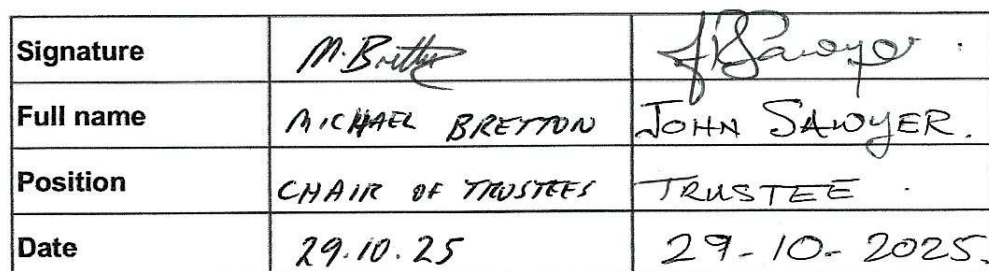 Signature M. Bretton J Sawyer
Full name MICHAEL BRETTON JOHN SAWYER.
Position CHAIR OF TRUSTEES TRUSTEE.
Date 29.10.25 29-10-2025.